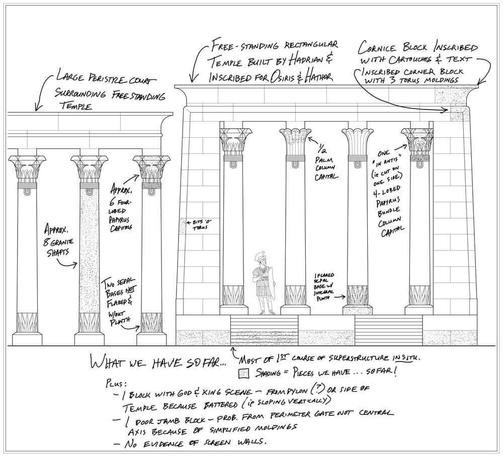 Large Peristyle Court
Surrounding Free Standing
Temple
Free-Standing Rectangular
Temple Built by Hadrian &
Inscribed for Osiris & Hathor
Cornice Block Inscribed
with Cartouches & Text
Inscribed Corner Block
with 3 Torus Moldings
Approx.
6 Four-
Lobed
Papyrus
Capitals
Approx.
8 Granite
Shafts
Two Sepal
Bases Not
Flared &
W/out
Plinth
Bits 'o'
Torus
1/2
Palm
Column
Capital
One
"in antis"
(ie cut on
one side)
4-Lobed
Papyrus
Bundle
Column
Capital
1 Flared
Sepal
Base w/
Integral
Plinth
What we have so far...
Most of 1st course of superstructure in situ.
Shading = Pieces we have... so far!
Plus:
– 1 Block with God & King Scene – from pylon (?) or side of
Temple because battered (ie sloping vertically)
– 1 Door Jamb Block – prob. from perimeter gate not central
axis because of simplified moldings
– No evidence of screen walls.